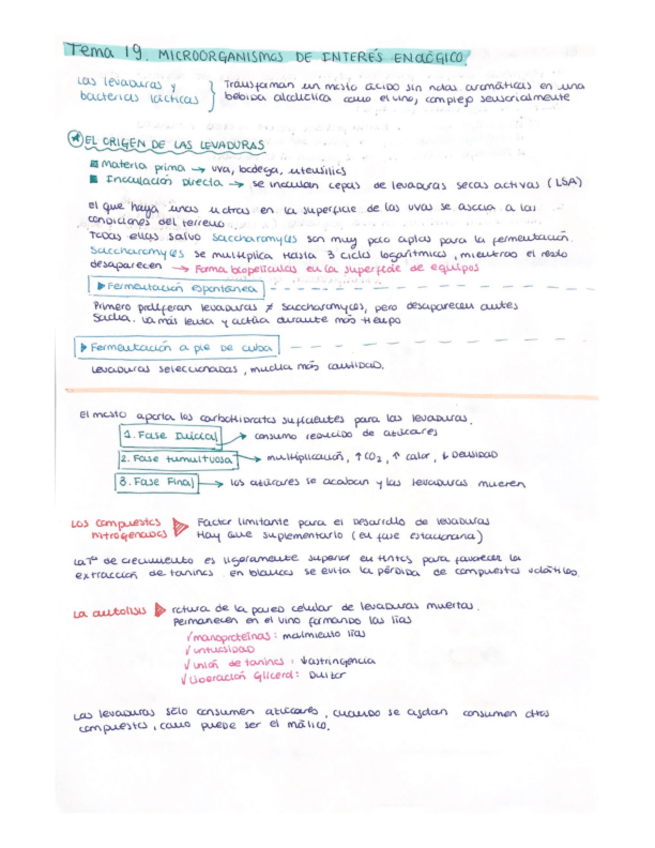 Tema 19. MICROORGANISMOS DE INTERÉS ENOLÓGICO
Las levaduras y bacterias lácticas } Transforman un mosto ácido sin notas aromáticas en una
bebida alcohólica como el vino, complejo sensorialmente
EL ORIGEN DE LAS LEVADURAS
Materia prima → uva, bodega, utensilios
Inoculación directa → se inoculan cepas de levaduras secas activas (LSA)
El que haya unas u otras en la superficie de las uvas se asocia a las
condiciones del terreno.
Todas ellas salvo Saccharomyces son muy poco aptas para la fermentación.
Saccharomyces se multiplica hasta 3 ciclos logarítmicos, mientras el resto
desaparecen → Forma biopelículas en la superficie de equipos
Fermentación espontánea
Primero proliferan levaduras ≠ Saccharomyces, pero desaparecen antes
Sacha. va más lenta y actúa durante más tiempo
Fermentación a pie de cuba
Levaduras seleccionadas, mucha más cantidad.
El mosto aporta los carbohidratos suficientes para las levaduras.
1. Fase Inicial → consumo reducido de azúcares
2. Fase tumultuosa → multiplicación, ↑ CO2, ↑ calor, ↓ Densidad
3. Fase Final → los azúcares se acaban y las levaduras mueren
Los compuestos nitrogenados Factor limitante para el desarrollo de levaduras
Hay que suplementarlo (en fase estacionaria)
La Tª de crecimiento es ligeramente superior en tintos para favorecer la
extracción de taninos. en blancos se evita la pérdida de compuestos volátiles.
La autolisis rotura de la pared celular de levaduras muertas.
Permanecen en el vino formando las lías
√ manoproteínas:  lías
√ untuosidad
√ unión de taninos: ↓ astringencia
√ Liberación Glicerol: Dulzor
Las levaduras sólo consumen azúcares, cuando se agotan consumen otros
compuestos, como puede ser el málico.